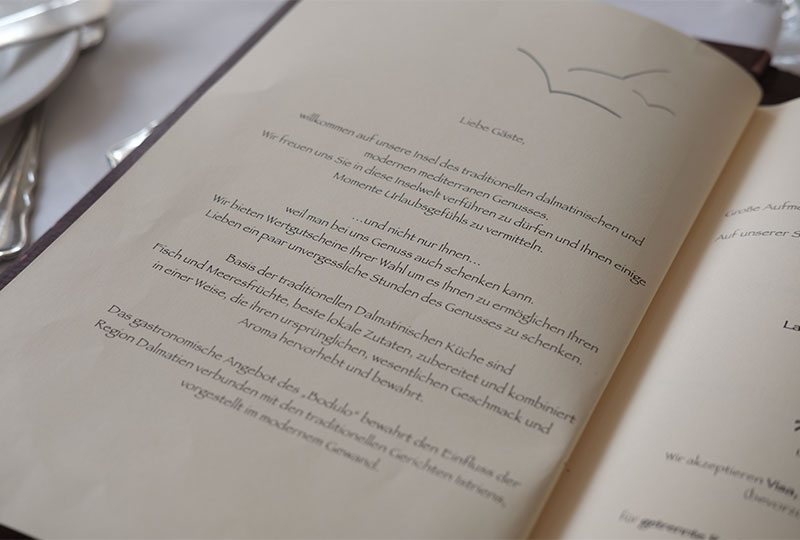 Liebe Gäste,
willkommen auf unsere Insel des traditionellen dalmatinischen und
modernen mediterranen Genusses.
Wir freuen uns Sie in diese Inselwelt verführen zu dürfen und Ihnen einige
Momente Urlaubsgefühls zu vermitteln.
...und nicht nur Ihnen...
weil man bei uns Genuss auch schenken kann.
Wir bieten Wertgutscheine Ihrer Wahl um es Ihnen zu ermöglichen Ihren
Lieben ein paar unvergessliche Stunden des Genusses zu schenken.
Basis der traditionellen Dalmatinischen Küche sind
Fisch und Meeresfrüchte, beste lokale Zutaten, zubereitet und kombiniert
in einer Weise, die ihren ursprünglichen, wesentlichen Geschmack und
Aroma hervorhebt und bewahrt.
Das gastronomische Angebot des „Bodulo" bewahrt den Einfluss der
Region Dalmatien verbunden mit den traditionellen Gerichten Istriens,
vorgestellt im modernem Gewand.
Große Aufme
Auf unserer S
La
wir akzeptieren Visa,
(bevorz
für getrennte